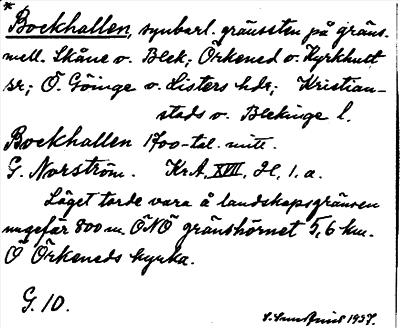 * Bockhallen, synbarl. gränssten på gräns.
mell. Skåne o. Blek; Örkened o. Kyrkhult
sr; Ö. Göinge o. Listers hdr; Kristian-
stads o. Blekinge l.
Bockhallen 1700-tal. mitt.
G. Norström. Kr.A, XVII, H, 1. a.
Läget torde vara å landskapsgränsen
ungefär 800 m. ÖNÖ gränshörnet 5,6 km.
Ö Örkeneds kyrka.
G. 10.
1937.